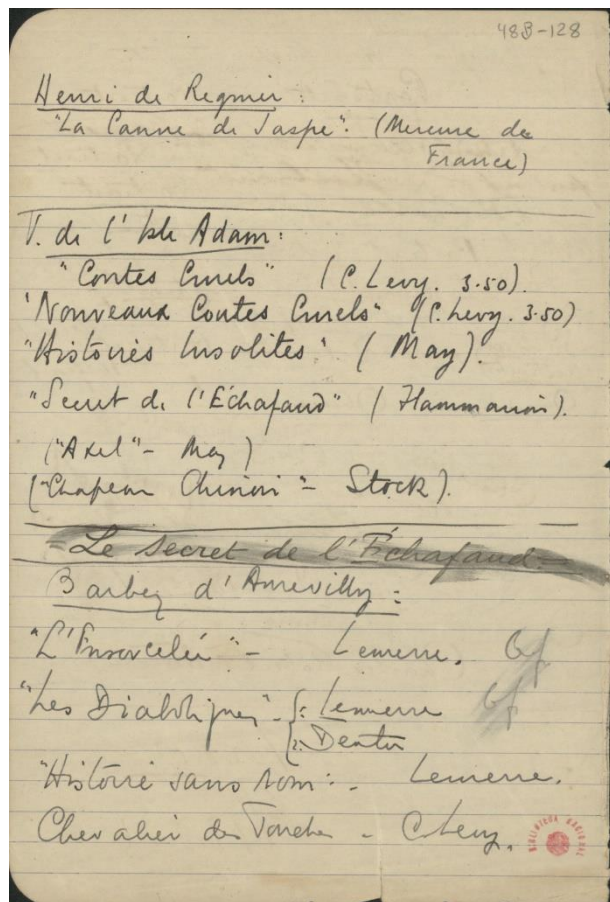 48B-128
Henri de Regnier:
"La Canne de Jaspe". (Mercure de
France)
V. de l'Isle Adam:
"Contes Cruels" (C. Levy. 3.50).
"Nouveaux Contes Cruels" (C. Levy. 3.50)
"Histoires Insolites". (May).
"Secret de l'Échafaud" (Flammarion).
("Axel" - May)
("Chapeau Chinois" - Stock).
Le Secret de l'Échafaud
Barbey d'Aurevilly:
"L'Ensorcelée" - Lemerre.
"Les Diaboliques" - Lemerre
Dentu
"Histoire sans nom": - Lemerre.
Chevalier des Touches - C. Levy.
BIBLIOTECA NACIONAL